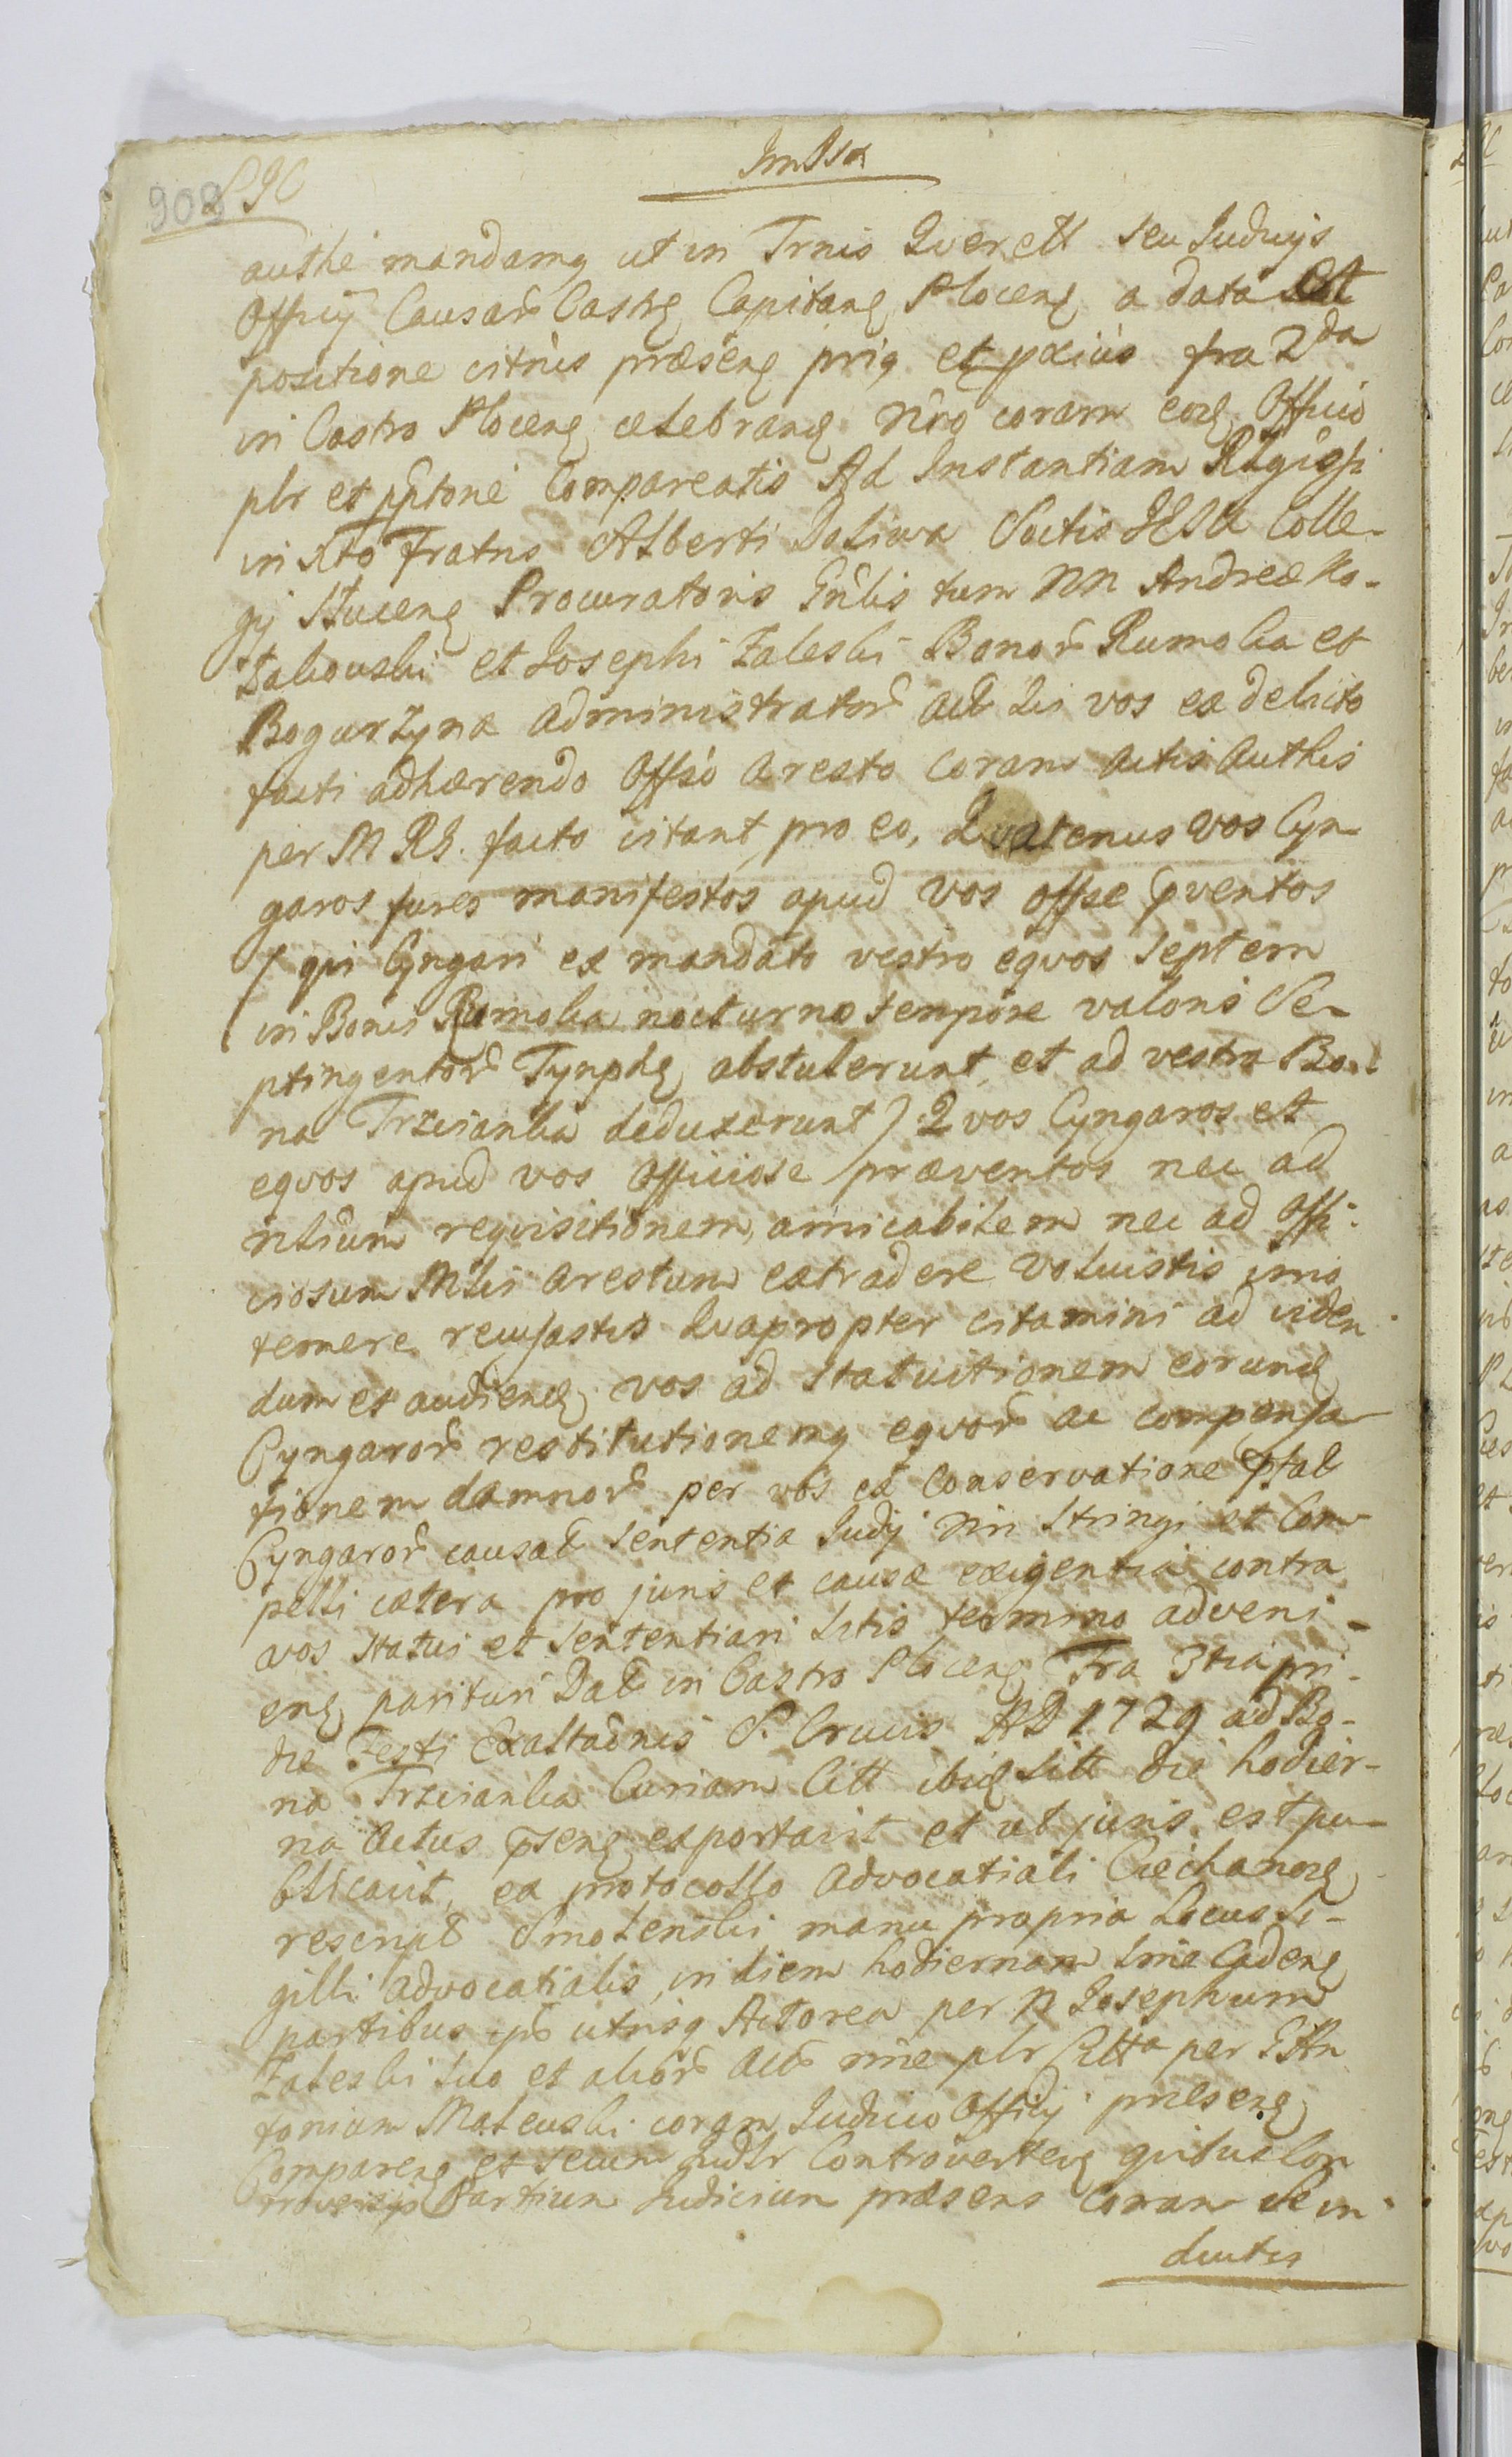 908
Imssa
authe mandamq ut in Trnis Querell seu Judicijs
Officij Causar Castrę Capitanę Plocenę a data et
positione citnis præsenę priq et pxius fra 2da
in Castro Plocenę celebranę nro coram eoę Officio
plr et pptorie Compareatis Ad Instantiam Rlgiossi
in Xto Fratris Alberti Daliwa Soctis JESU Colle-
gij Plocenę Procuratoris Gnlis tum NN Andreæ Ko-
złakowski et Josephi Zaleski Bonor Rumoka et
Bogurzyna Administrator Act Qui vos ex delicto
facti adhærendo Offso Aresto coram Actis Authis
per M RG. facto citant pro eo, Quatenus vos Cyn
garos fures manifestos apud vos offse pventos
/ qui Cyngari ex mandato vestro equos septem
in Bonis Rumoka nocturno tempore valoris Se-
ptingentor Tymphę abstulerunt, et ad vestra Bo-
na Trzcianka deduxerunt / Q vos Cyngaros et
equos apud vos Officiose præventos nec ad
ntium requisitionem, amicabilem nec ad Offi-
ciosum Mlis Arestum extradere voluistis imo
temere recusastis Quapropter citamini ad viden
dum et audienę vos ad statuitionem eorunę
Cyngaror restitutionemq equor ac compensa
tionem damnor per vos ex Conservatione pfat
Cyngaror causat sententia Judij nri stringi et Com
pelli cætera pro juris et causæ exigentia contra
vos statui et sententiari Litis termino adveni-
enę parituri Dat in Castro Plocenę Fra 3tia pri-
die Festi Exaltaonis S. Crucis AD 1729 ad Bo-
na Trzcianka Curiam Citt ibię sitt die hodier-
na Actus psenę exportavit et ut juris est pu-
blicavit, ex protocollo Advocatiali Ciechanoę
rescript Smolenski manu propria Locus Si-
gilli Advocatialis, in diem hodiernam Lime Cadenę
partibus utrisq Actorea per N Josephum
Zaleski suo et alior Act nne plr Citta per G An
tonium Mateuski coram Judicio Officij præsenę
Comparenę et secum Judlr Controvertenę quibus Con
troversijs Partium Judicium præsens Coram Se in
ductis